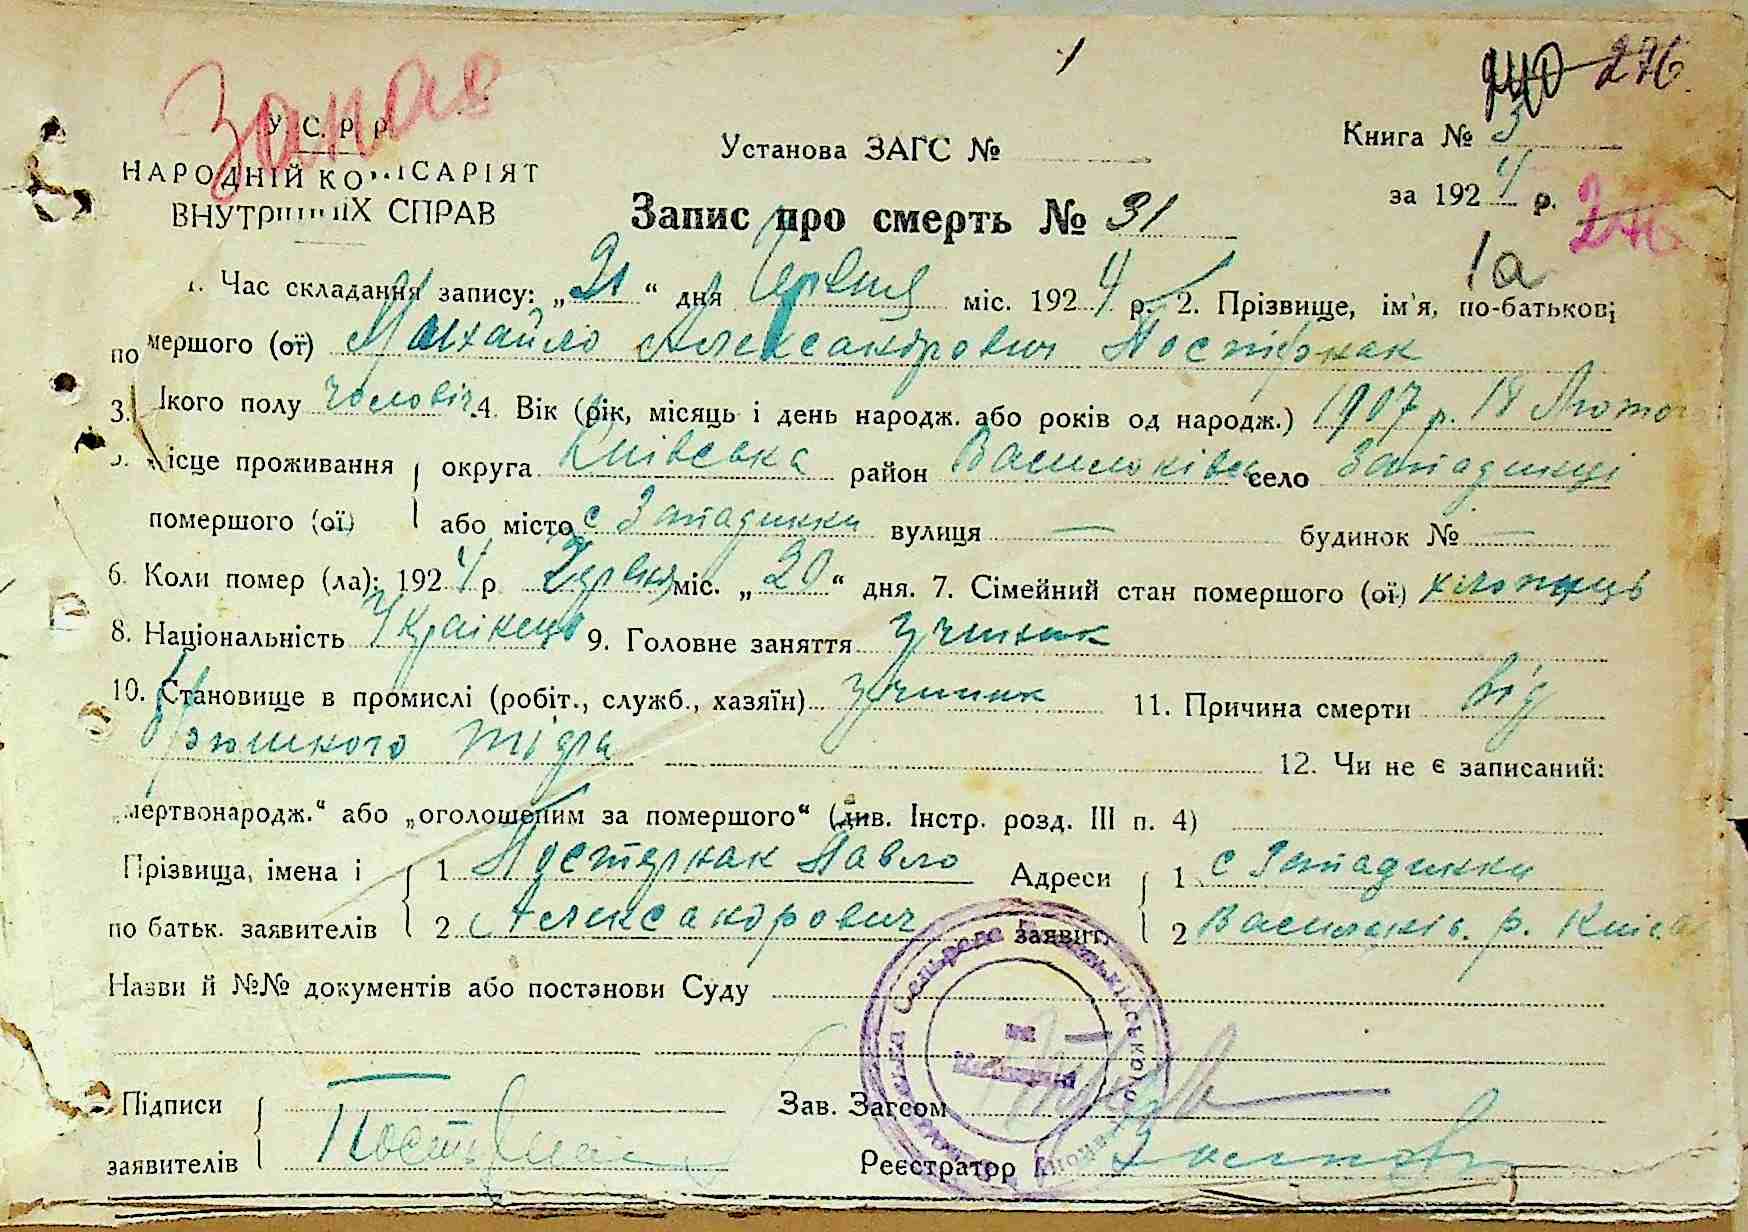 1
240 276
Запас
У. С. Р. Р.
НАРОДНІЙ КОМІСАРІЯТ
ВНУТРІШНІХ СПРАВ
Установа ЗАГС №
Книга № 3
за 1924 р. 276
Запис про смерть № 31
1а
1. Час складання запису: „21“ дня Червня міс. 1924 р. 2. Прізвище, ім'я, по-батькові
помершого (ої) Михайло Александрович Постернак
3. Якого полу чоловіч. 4. Вік (рік, місяць і день народж. або років од народж.) 1907 р. 18 Лютог
5. Місце проживання округа Київська район Васильківськ село Западинці
помершого (ої) або місто с Западинки вулиця — будинок № —
6. Коли помер (ла): 1924 р Червня міс. „20“ дня. 7. Сімейний стан помершого (ої) хлопець
8. Національність Українець 9. Головне заняття Учиник
10. Становище в промислі (робіт., служб., хазяїн) Учиник 11. Причина смерти від
брюшного тіфа
12. Чи не є записаний:
„мертвонародж.“ або „оголошеним за помершого“ (див. Інстр. розд. III п. 4)
Прізвища, імена і 1 Постернак Павло Адреси 1 с Западинки
по батьк. заявителів 2 Александрович заявит. 2 Васильків. р. Київ
Назви й №№ документів або постанови Суду
Підписи
Зав. Загсом
заявителів Постернак
Реєстратор